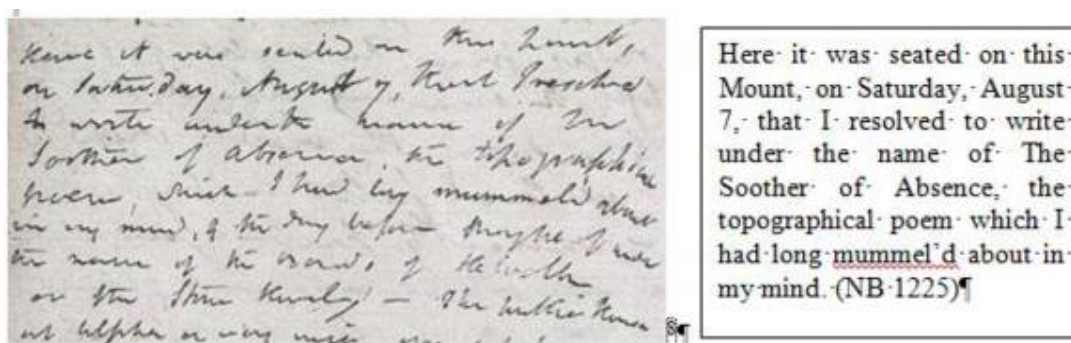 Here it was seated on this Mount,
on Saturday, August 7, that I resolved
to write under the name of The
Soother of Absence, the topographical
poem which I had long mummel'd about
in my mind, & the day before thought of under
the name of the Bards of Helvellin
or the Stone Hurdles — The
at Ulpha
Here it was seated on this
Mount, on Saturday, August
7, that I resolved to write
under the name of The
Soother of Absence, the
topographical poem which I
had long mummel'd about in
my mind. (NB 1225)¶